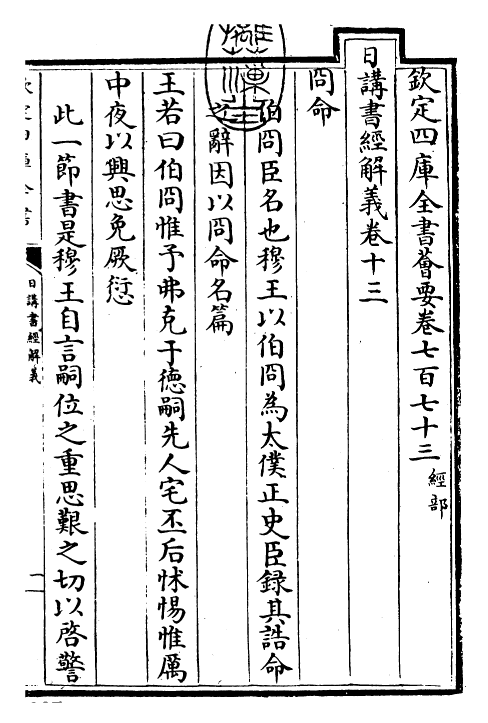 欽定四庫全書薈要卷七百七十三 經部
日講書經解義卷十三
冏命
伯冏臣名也穆王以伯冏為太僕正史臣錄其誥命
之辭因以冏命名篇
王若曰伯冏惟予弗克于德嗣先人宅丕后怵惕惟厲
中夜以興思免厥愆
此一節書是穆王自言嗣位之重思艱之切以啓警
日講書經解義